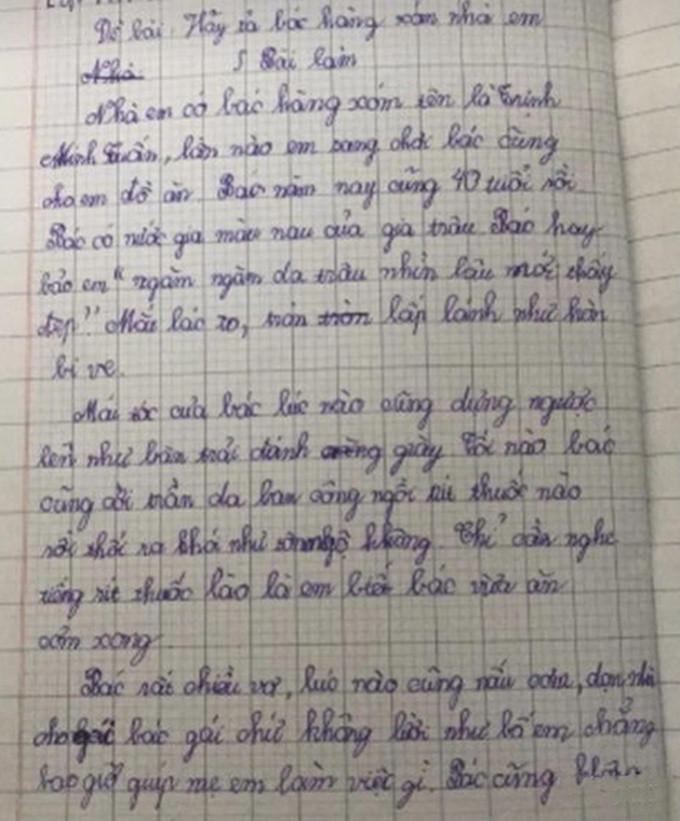 Đề bài: Hãy tả bác hàng xóm nhà em
Nhà Bài làm
Nhà em có bác hàng xóm tên là Trịnh
Minh Tuấn, lần nào em sang chơi bác cũng
cho em đồ ăn. Bác năm nay cũng 40 tuổi rồi
Bác có nước gia màu nau của gia trâu Bác hay
bảo em "ngăm ngăm da trâu nhìn lâu mới thấy
đẹp" Mắt bác to, tròn tròn lấp lánh như hòn
bi ve.
Mái tóc của bác lúc nào cũng dựng ngược
lên như bàn trải đánh giày Tối nào bác
cũng cởi trần da ban công ngồi rít thuốc nào
rồi thổi ra khói như khổng. Chỉ cần nghe
tiếng rít thuốc lào là em biết bác vừa ăn
cơm xong
Bác rất chiều vợ, lúc nào cũng nấu cơm, dọn nhà
cho bác gái chứ không lười như bố em chẳng
bao giờ giúp mẹ em làm việc gì. Bác cũng